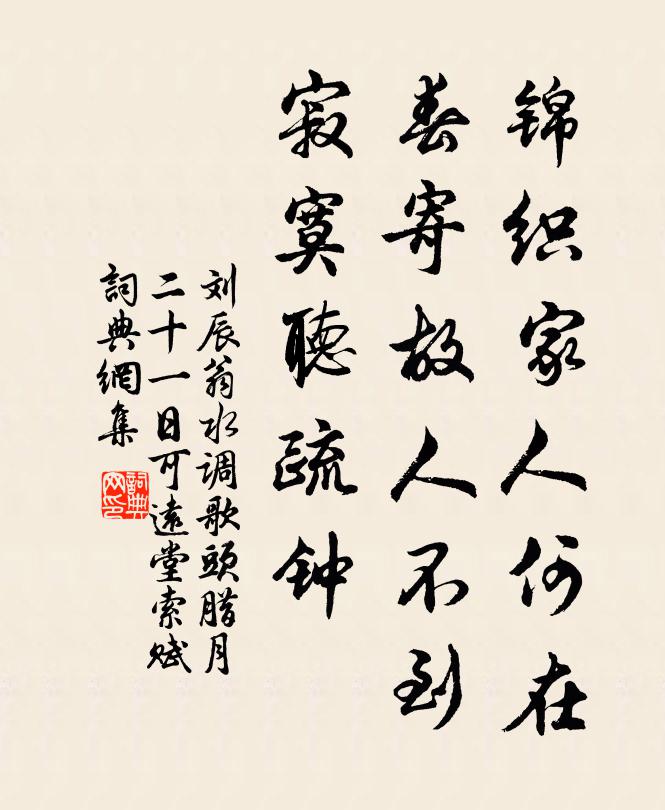 锦织家人何在
春寄故人不到
寂寞聽疏钟
刘辰翁水调歌頭腊月
二十一日可遠堂索赋
詞典網集
詞典
网印